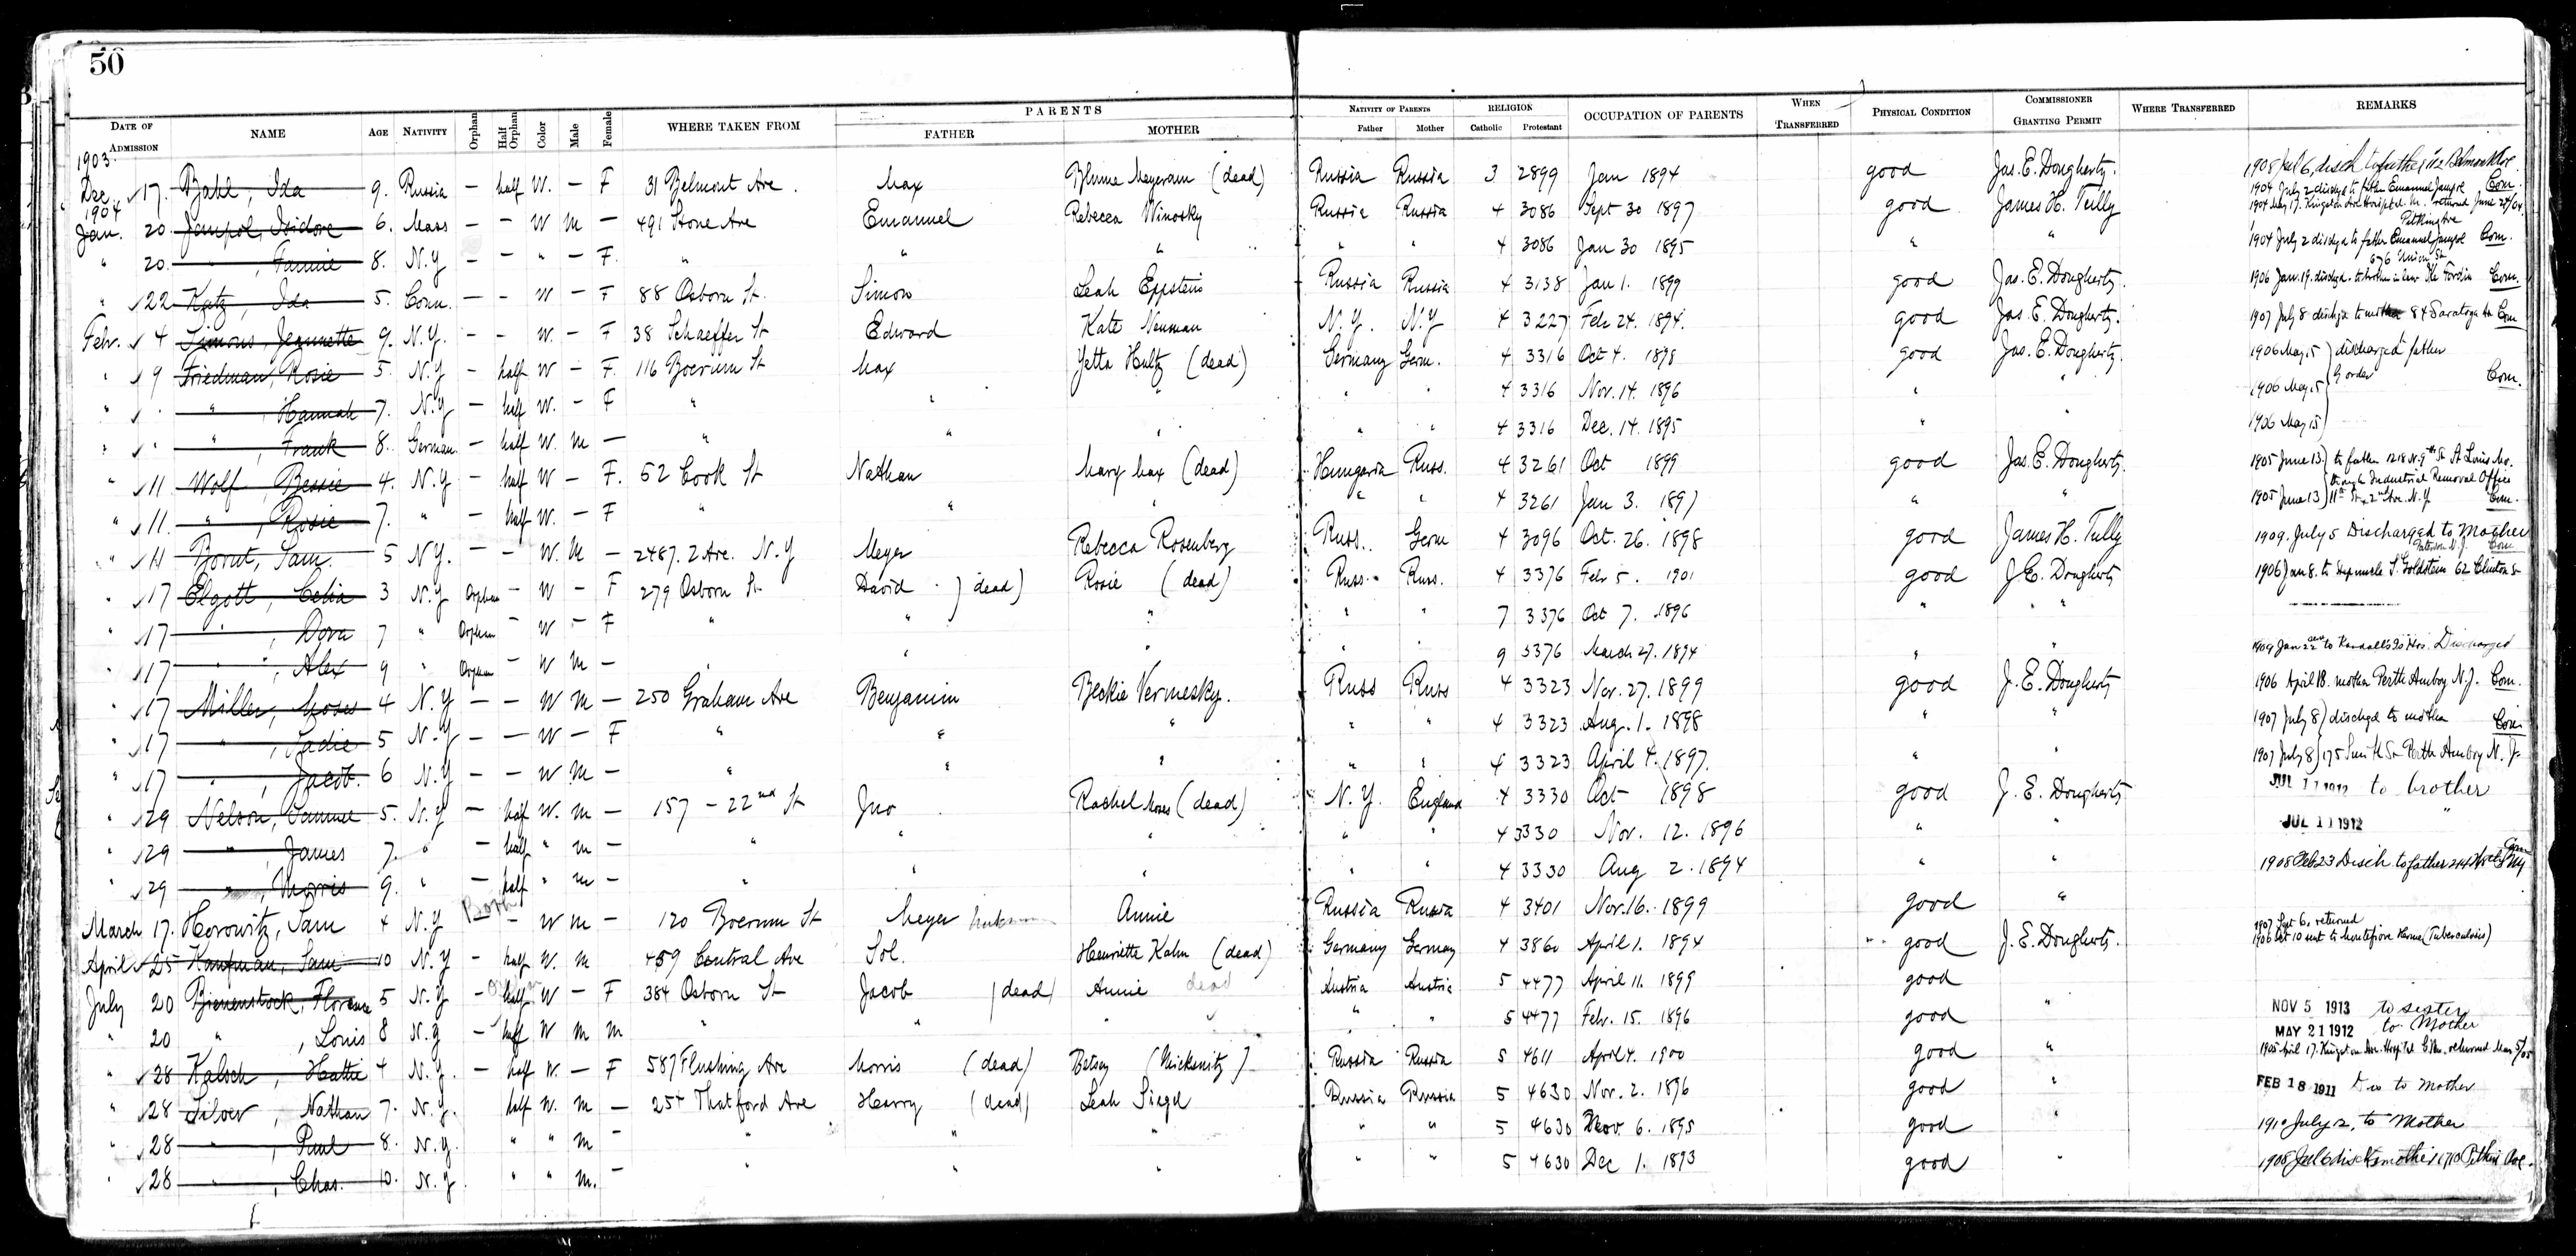 50
DATE OF ADMISSION NAME AGE NATIVITY Orphan Half Orphan Color Male Female WHERE TAKEN FROM PARENTS FATHER MOTHER NATIVITY OF PARENTS Father Mother RELIGION Catholic Protestant OCCUPATION OF PARENTS WHEN TRANSFERRED PHYSICAL CONDITION COMMISSIONER GRANTING PERMIT WHERE TRANSFERRED REMARKS
1903
Dec. 17. Bahl, Ida 9. Russia — half W. — F 31 Belmont Ave. Max Blume Meyerann (dead) Russia Russia 3 2899 Jan 1894 good Jas. E. Dougherty. 1908 Jul 6, disch to father 112 Belmont Ave
1904
Jan. 20 Jampol, Isidore 6. Mass — — W M — 491 Stone Ave Emanuel Rebecca Winosky Russia Russia 4 3086 Sept 30 1897 good James H. Tully 1904 July 2 dischgd to father Emanuel Jampol Com.
1904 May 17. Kingston Ave Hospital M. returned June 24/04
Pitkin Ave
" 20 " , Fannie 8. N.Y — — " — F. " " " " " 4 3086 Jan 30 1895 " " 1904 July 2 dischgd to father Emanuel Jampol Com.
" 22 Katz, Ida 5. Conn. — — W — F 88 Osborn St. Simon Leah Eppstein Russia Russia 4 3138 Jan 1. 1899 good Jas. E. Dougherty. 1906 Jan. 19. dischgd. to brother in law Com.
676 Union St
Febr. 4 Simons Jeannette 9. N.Y. — — W. — F 38 Schaeffer St Edward Kate Neuman N.Y. N.Y 4 3227 Feb 24. 1894. good Jas. E. Dougherty. 1907 July 8 dischgd to mother 84 Saratoga Av Com
" 9 Friedman, Rosie 5. N.Y — half W — F. 116 Boerum St Max Yetta Hultz (dead) Germany Germ. 4 3316 Oct 4. 1898 good Jas. E. Dougherty. 1906 May 15 ) discharged father
" " " , Hannah 7. N.Y — half W. — F " " " " " 4 3316 Nov. 14. 1896 " " 1906 May 15 order Com.
" " " , Frank 8. German. — half W. M — " " " " " 4 3316 Dec. 14. 1895 " " 1906 May 15 )
" 11. Wolf, Bessie 4. N.Y — half W — F. 52 Cook St Nathan Mary Max (dead) Hungaria Russ. 4 3261 Oct 1899 good Jas. E. Dougherty. 1905 June 13 ) to father 1218 N. 9th St St Louis Mo.
through Industrial Removal Office
" 11. " , Rosie 7. " half W. — F " " " " " 4 3261 Jan 3. 1897 " " 1905 June 13 ) 11th St & 2nd Ave. N.Y Com.
" 11 Borut, Sam. 5 N.Y. — — W. M — 2487. 2 Ave. N.Y Meyer Rebecca Rosenberg Russ. Germ 4 3096 Oct. 26. 1898 good James H. Tully 1909. July 5 Discharged to Mother
Paterson N.J. Com
" 17 Elgott, Celia 3 N.Y Orphan — W — F 279 Osborn St David (dead) Rosie (dead) Russ. Russ. 4 3376 Feb 5. 1901 good J. E. Dougherty 1906 Jan 8. to Step uncle S. Goldstein 62 Clinton St
" 17 " , Dora 7 " Orphan — W — F " " " " " 7 3376 Oct 7. 1896 " "
" 17 " , Alex 9 " Orphan — W M — " " " " 9 3376 March 27. 1894 " " 1909 Jan 22 to Randall's Is Hos. Discharged
" 17 Miller, Moses 4 N.Y — — W M — 250 Graham Ave Benjamin Beckie Vermesky. Russ Russ 4 3323 Nov. 27. 1899 good J. E. Dougherty 1906 April 18. mother Perth Amboy N.J. Com.
" 17 " , Sadie 5 N.Y — — W — F " " " " " 4 3323 Aug. 1. 1898 " " 1907 July 8 ) dischgd to mother Com.
" 17 " , Jacob. 6 N.Y — — W M — " " " " " 4 3323 April 4. 1897. " " 1907 July 8 ) 175 Smith St Perth Amboy N.J.
" 29 Nelson, Samue 5. N.Y — half W. M — 157 – 22nd St Jno Rachel Moses (dead) N.Y. England 4 3330 Oct 1898 good J. E. Dougherty JUL 11 1912 to brother
" 29 " , James 7. " — half " M — " " " " " 4 3330 Nov. 12. 1896 " " JUL 11 1912 "
" 29 " , Morris 9. " — half " M — " " " " " 4 3330 Aug 2. 1894 " " 1908 Feb 23 Disch to father Com
March 17. Horowitz, Sam 4 N.Y Both — W M — 120 Boerum St Meyer Annie Russia Russia 4 3401 Nov. 16. 1899 good "
April 25 Kaufman, Sam 10 N.Y — half W. M 459 Central Ave Sol. Henriette Kahn (dead) Germany Germany 4 3860 April 1. 1894 good J. E. Dougherty. 1907 Sept 6, returned
1906 Oct 10 sent to Montefiore Home (Tuberculosis)
July 20 Bienenstock, Florence 5 N.Y — half W — F 384 Osborn St Jacob (dead) Annie dead Austria Austria 5 4477 April 11. 1899 good
" 20 " , Louis 8 N.Y — half W M M " " " " " 5 4477 Febr. 15. 1896 good " NOV 5 1913 to sister
MAY 21 1912 to Mother
" 28 Kalsch, Hattie 4 N.Y. — half W. — F 587 Flushing Ave Morris (dead) Betsey (Mickenitz) Russia Russia 5 4611 April 4. 1900 good " 1905 April 17. Kingston Ave. Hospital returned May 5/05
" 28 Silver, Nathan 7. N.Y. half W. M — 254 Thatford Ave Harry (dead) Leah Siegel Russia Russia 5 4630 Nov. 2. 1896 good " FEB 18 1911 Dis to Mother
" 28 " , Paul 8. N.Y. " " M — " " " " " 5 4630 Nov. 6. 1895 good " 1910 July 12, to Mother
" 28 " , Chas. 10. N.Y. " " M. — " " " " " 5 4630 Dec 1. 1893 good " 1908 Jul 6 disch mother 1710 Pitkin Ave.